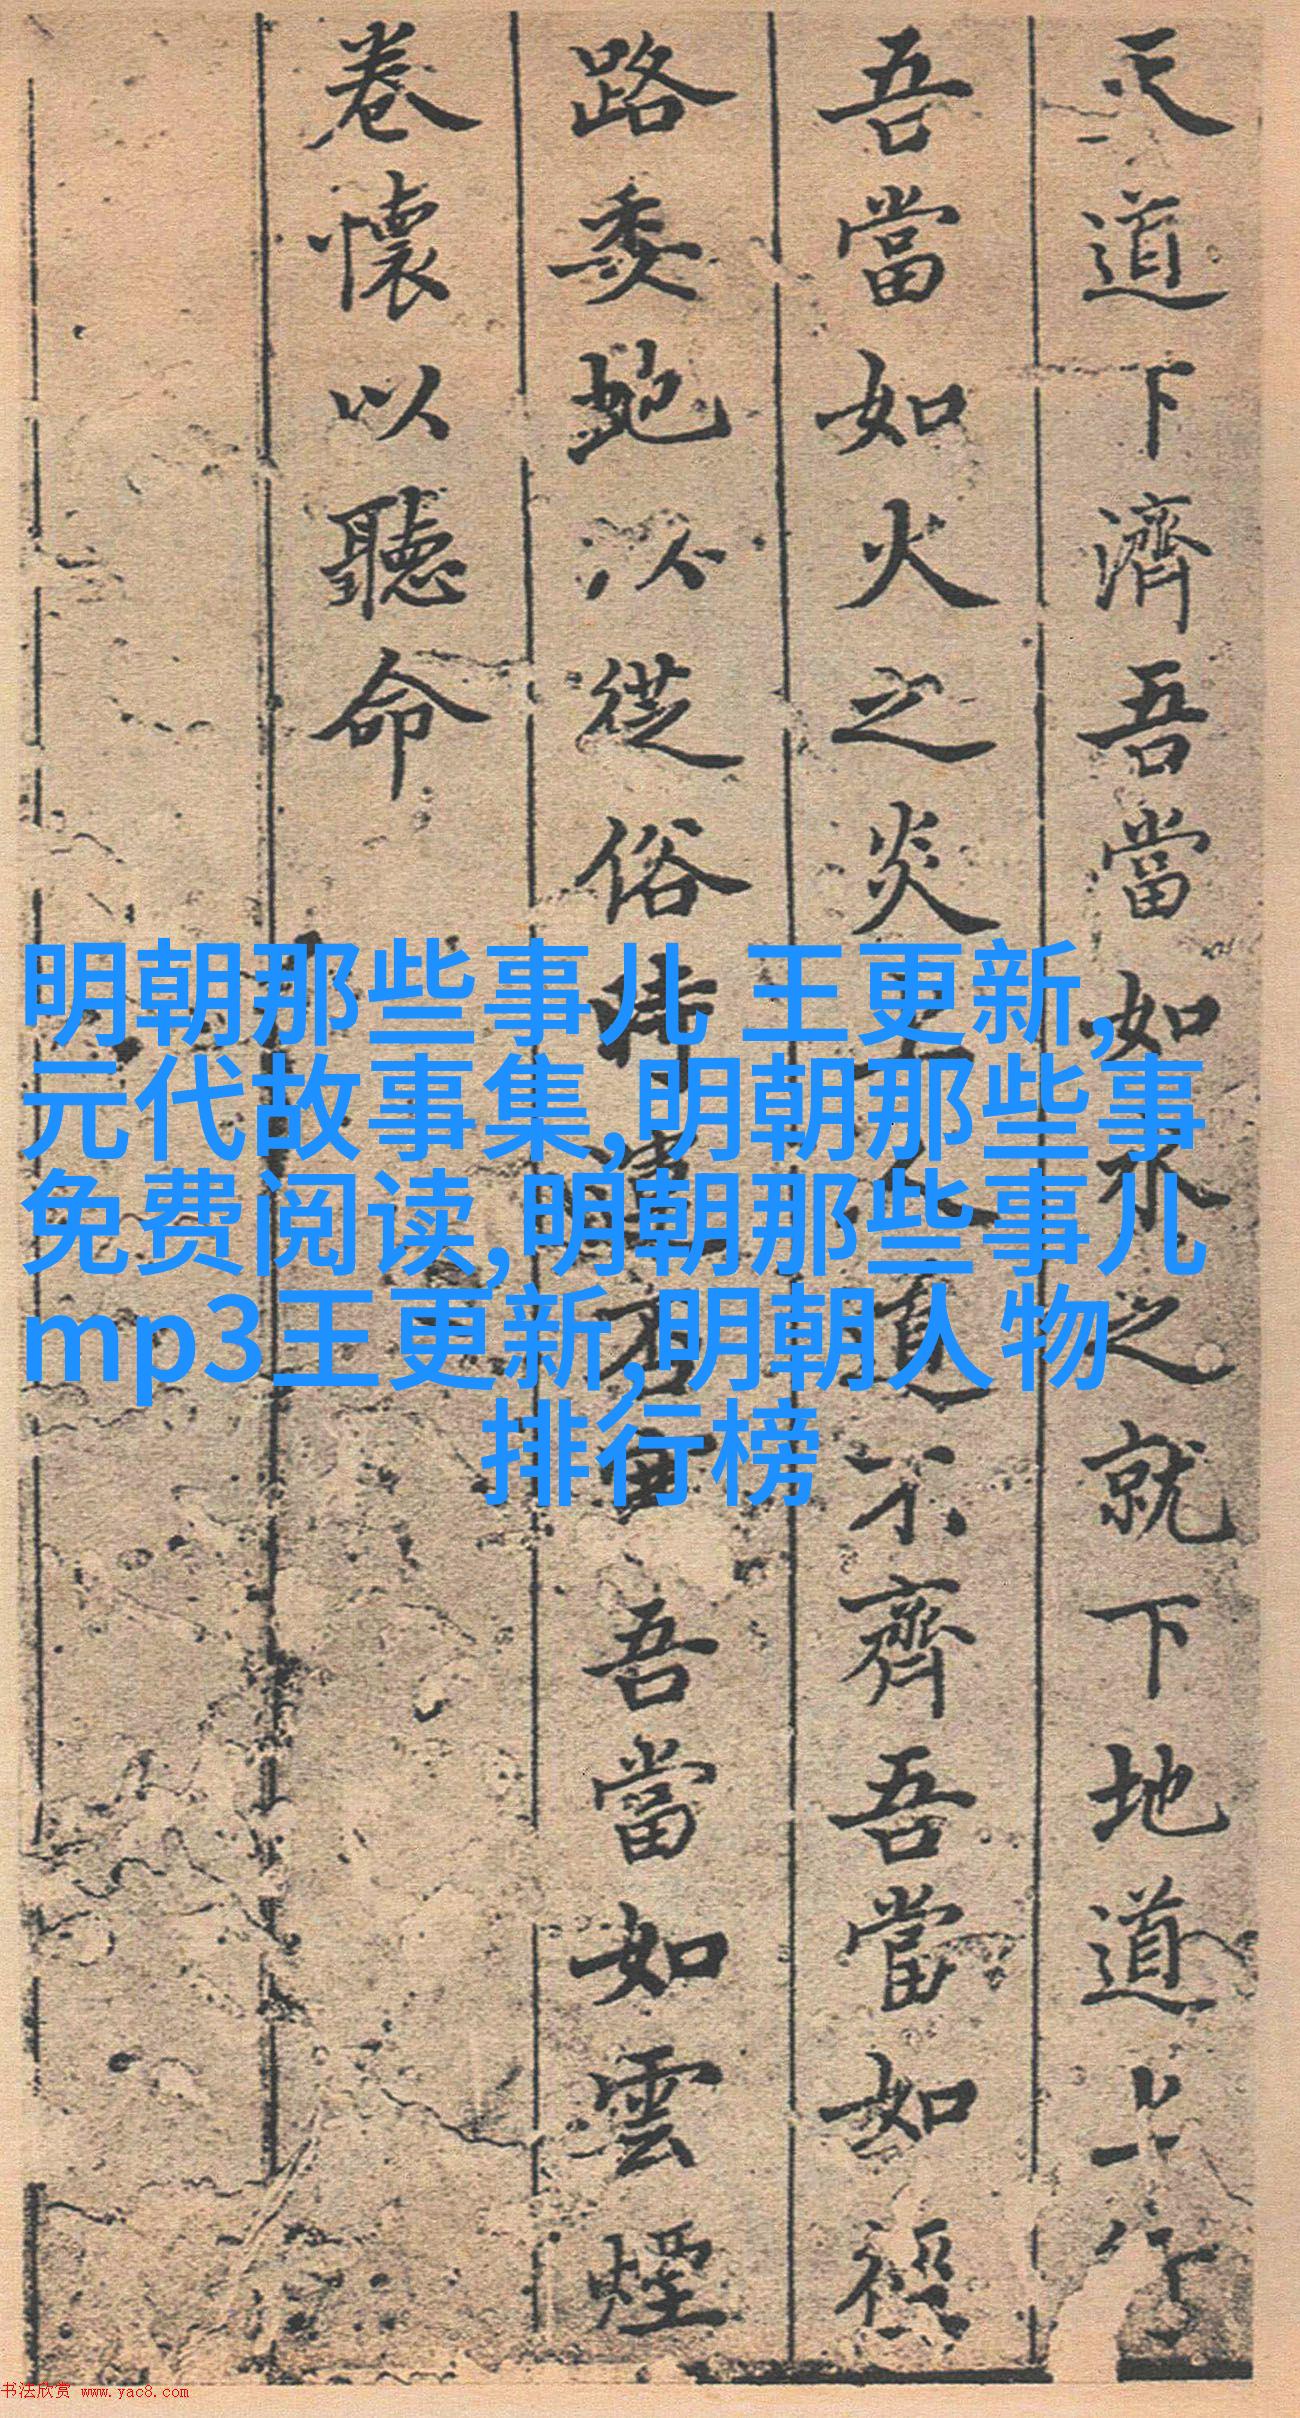 天道下濟吾當如水之就下地道上行
吾當如火之炎上人道不齊吾當如徑
路委虵以從俗時吾當如雲煙
卷懷以聽命
明朝那些事儿 王更新,
元代故事集,明朝那些事
免费阅读,明朝那些事儿
mp3王更新,明朝人物
排行榜
书法欣赏 www.yac8.com